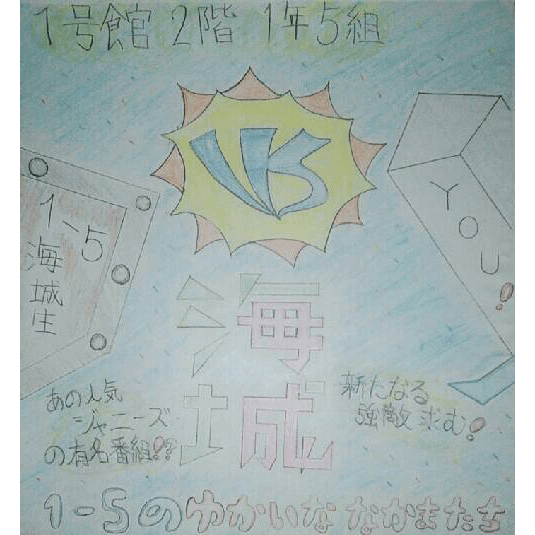 1号館 2階 1年5組
VS
YOU!
1、5
海城生
海城
あの人気
ジャニーズ
の有名番組!?
新たなる
強敵求む!
1-5のゆかいななかまたち